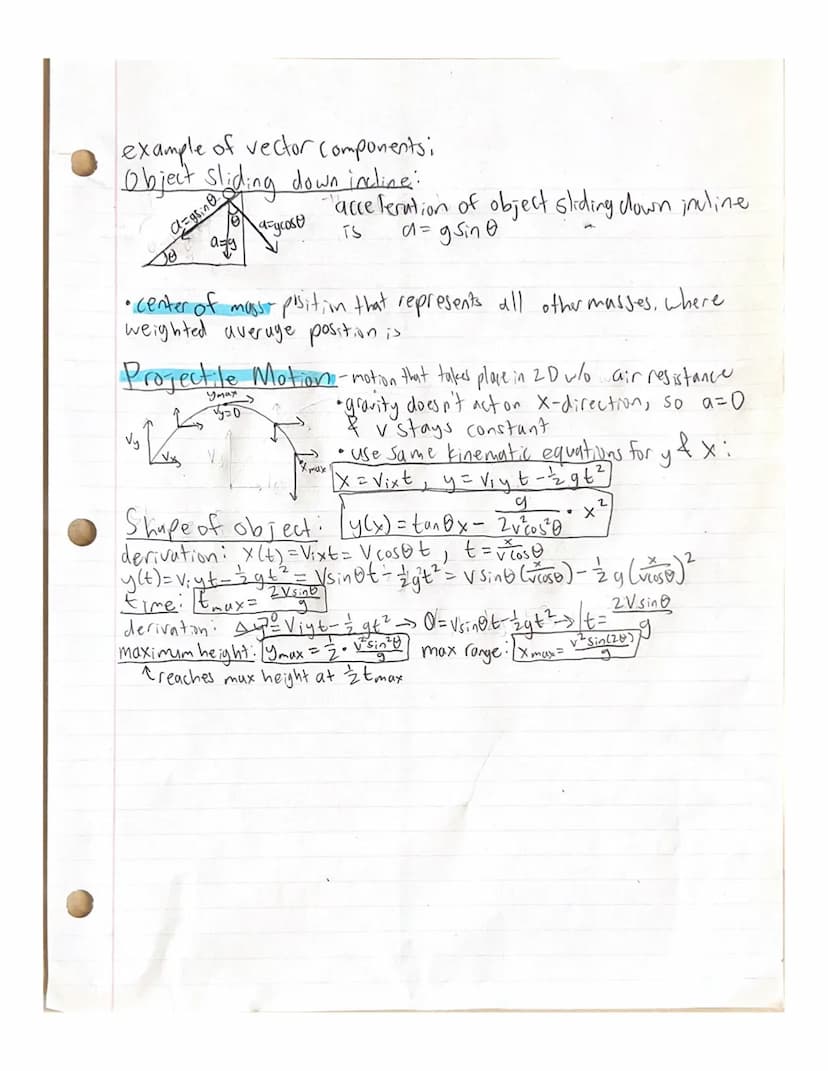 example of vector components:
Object sliding down incline:
a=gsinθ
θ
a=gcosθ
a=g
θ
acceleration of object sliding down incline
is a= gsinθ
• center of mass - position that represents all other masses, where
weighted average position is
Projectile Motion - motion that takes place in 2D w/o air resistance
ymax
vy=0
Vy
Vx
xmax
• gravity doesn't act on x-direction, so a=0
& v stays constant
• use same kinematic equations for y & x:
x = Vixt, y = Viy t - ½ gt²
Shape of object: y(x) = tanθx - g/(2v²cos²θ) • x²
derivation: x(t) = Vixt = Vcosθt, t = x/(vcosθ)
y(t) = Viyt - ½gt² = Vsinθt - ½gt² = Vsinθ(x/(vcosθ)) - ½g(x/(vcosθ))²
time: tmax = 2Vsinθ/g
derivation: Δy⁰ = Viyt - ½gt² → 0 = Vsinθt - ½gt² → t = 2Vsinθ/g
maximum height: ymax = ½ • v²sin²θ/g max range: xmax = v²sin(2θ)/g
↑ reaches max height at ½tmax